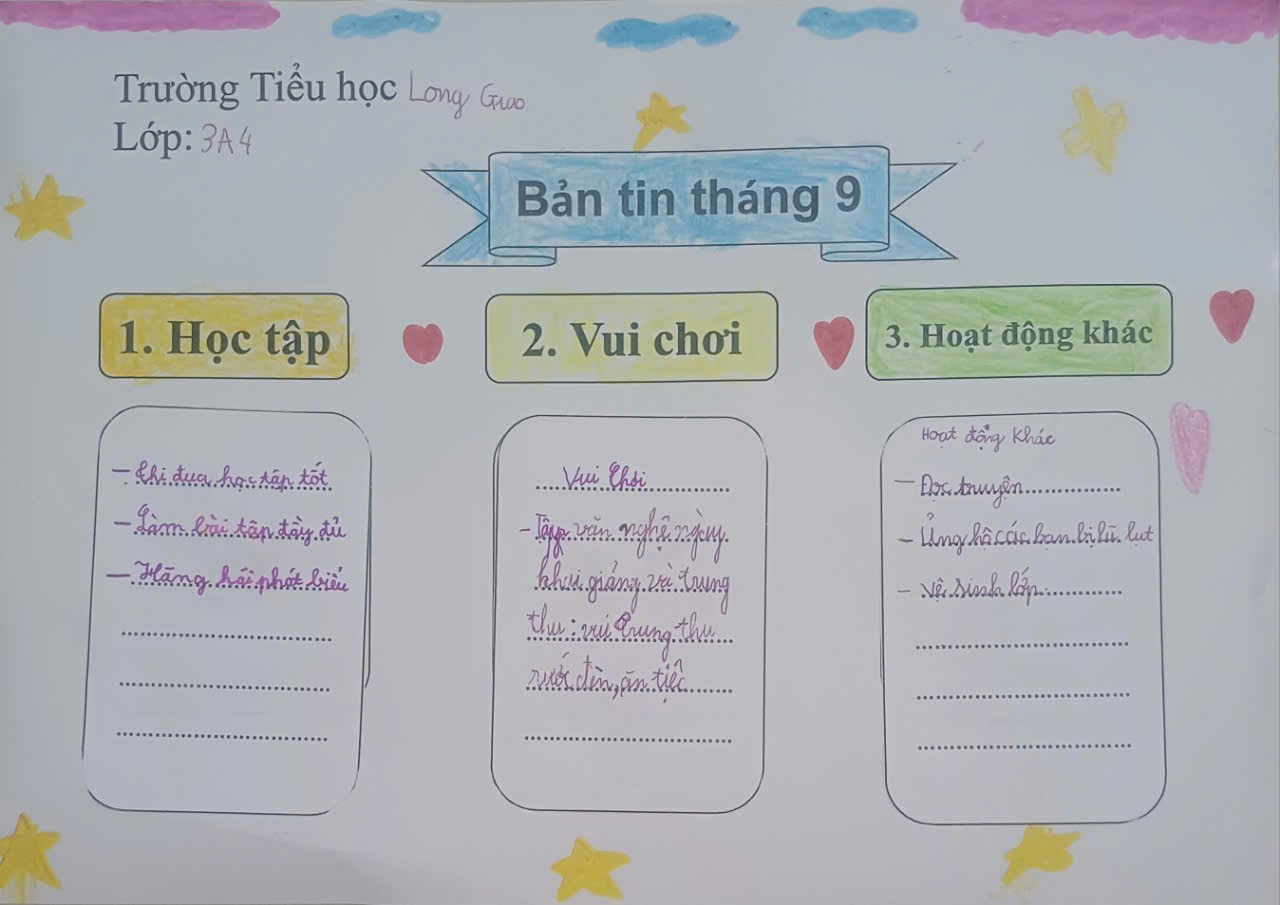 Trường Tiểu học Long Giao
Lớp: 3A4
Bản tin tháng 9
1. Học tập
- Thi đua học tập tốt
- Làm bài tập đầy đủ
- Hăng hái phát biểu
2. Vui chơi
Vui Chơi
- Tập văn nghệ ngày
khai giảng và trung
thu: vui Trung thu
rước đèn, ăn tiệc
3. Hoạt động khác
Hoạt động Khác
- Đọc truyện
- Ủng hộ các bạn bị lũ lụt
- Vệ sinh lớp